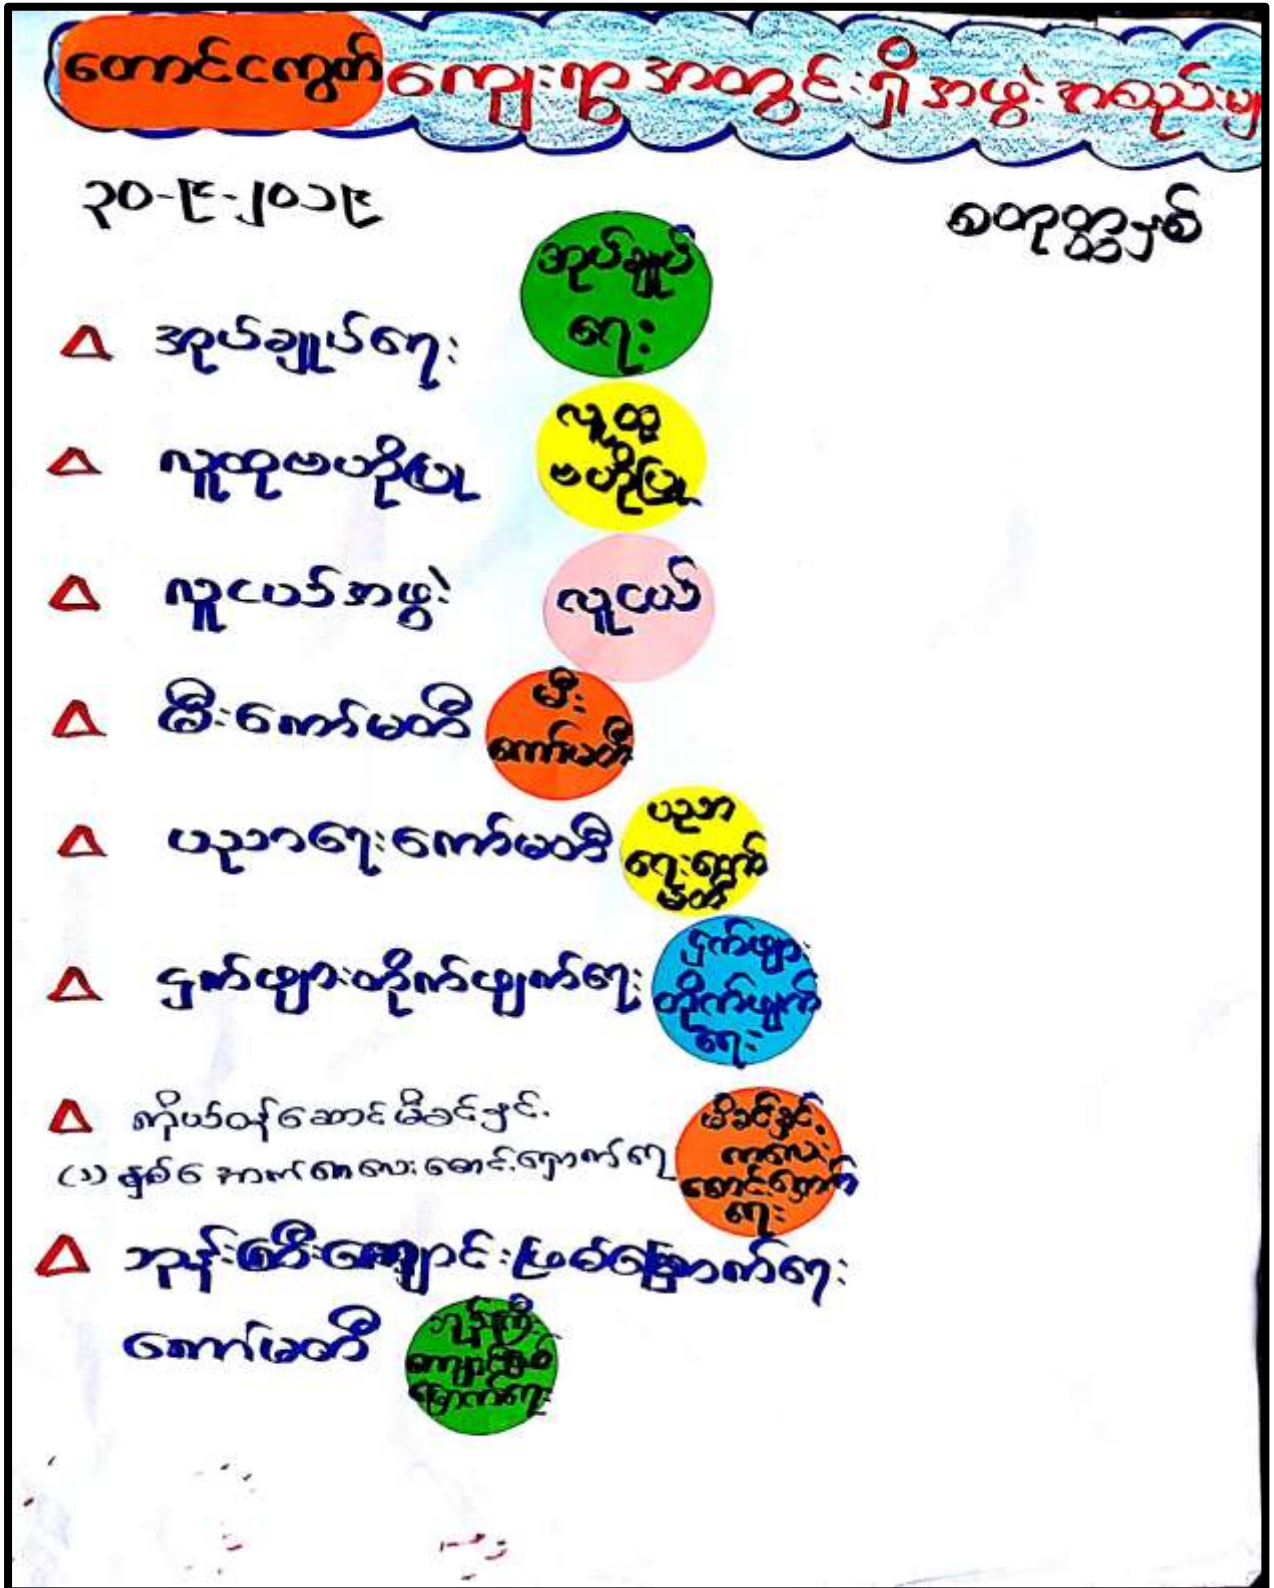 တောင်ငကွတ် ကျေးရွာအတွင်းရှိ အဖွဲ့အစည်းမျ
၃၀-၉-၂၀၁၉
စတုတ္ထနှစ်
အုပ်ချုပ်
ရေး
အုပ်ချုပ်ရေး
လူထု
ဗဟိုပြု
လူထုဗဟိုပြု
လူငယ်အဖွဲ့
လူငယ်
မီးကော်မတီ
မီး
ကော်မတီ
ပညာရေးကော်မတီ
ပညာ
ရေးကော်
မတီ
ငှက်ဖျားတိုက်ဖျက်ရေး
ငှက်ဖျား
တိုက်ဖျက်
ရေး
ကိုယ်ဝန်ဆောင်မိခင်နှင့်
(၁)နှစ်အောက်ကလေးစောင့်ရှောက်ရေ
မိခင်နှင့်
ကလေး
စောင့်ရှောက်
ရေး
ဘုန်းကြီးကျောင်းဖြစ်မြောက်ရေး
ကော်မတီ
ဘုန်းကြီး
ကျောင်းဖြစ်
မြောက်ရေး